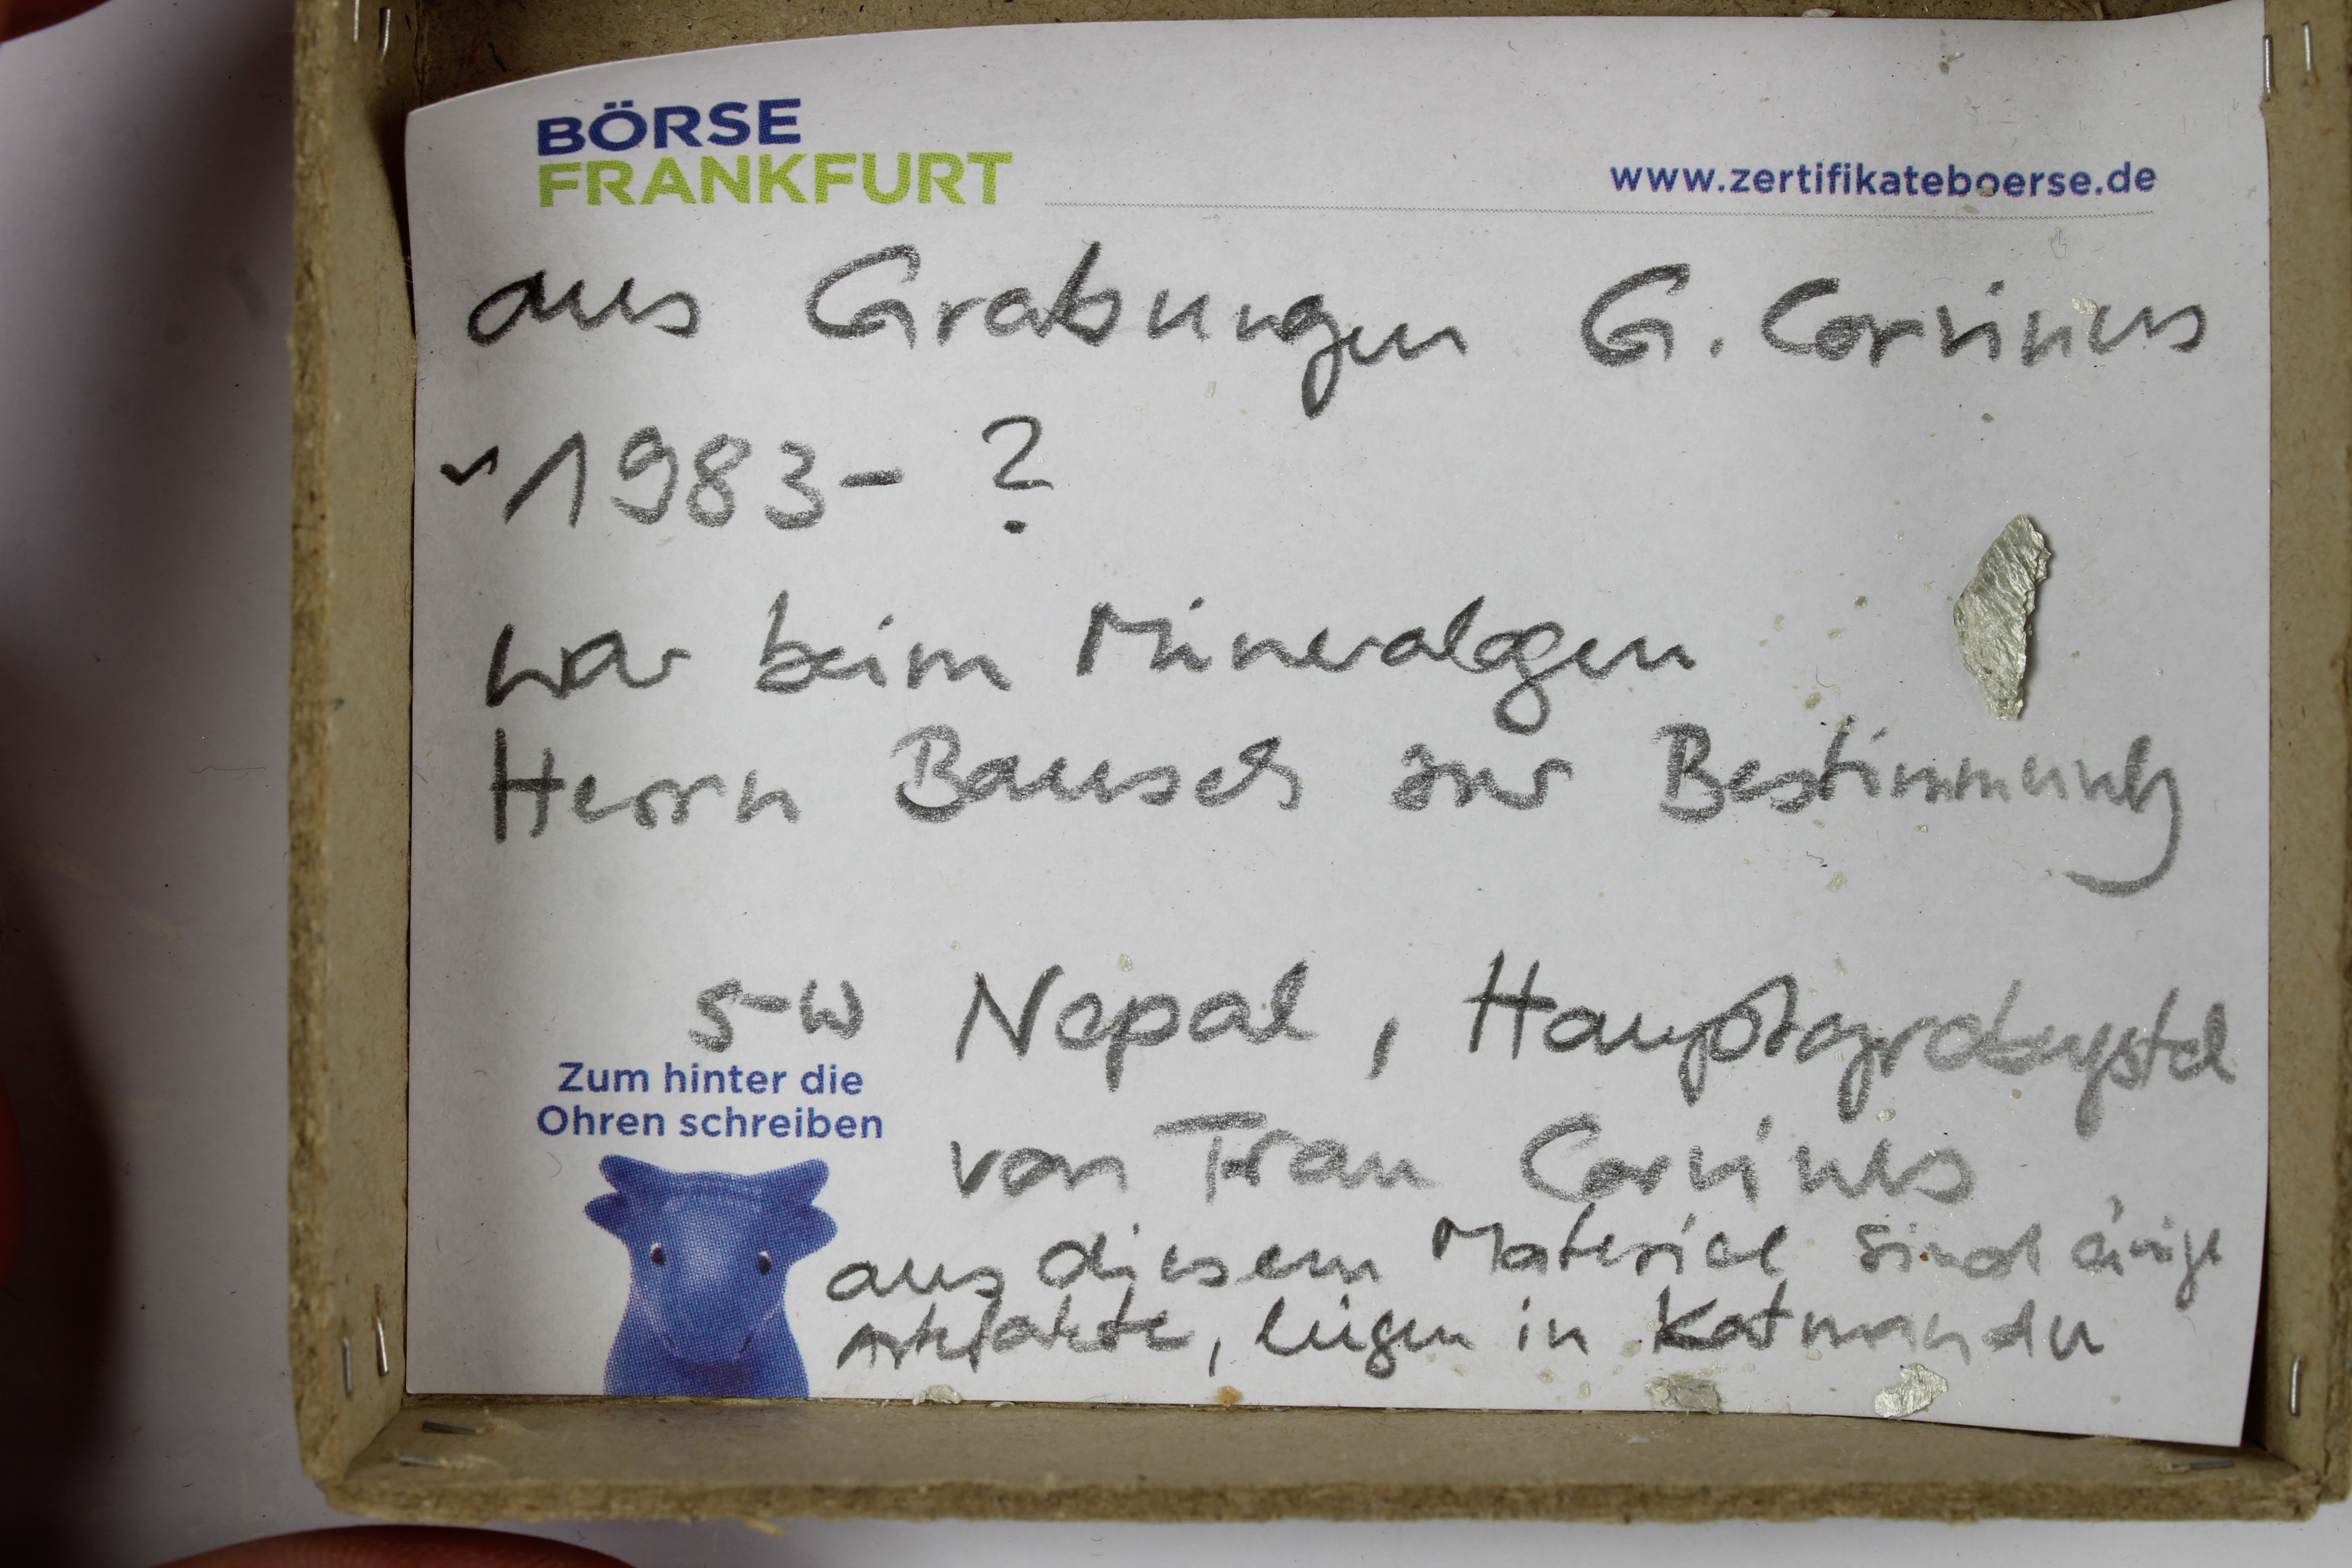 BÖRSE
FRANKFURT
www.zertifikateboerse.de
aus Grabungen G. Corvinus
~1983- ?
war beim Mineralogen
Herrn Bausch zur Bestimmung
S-W Nepal, Hauptgrabungsstel
von Frau Corvinus
aus diesem Material sind einige
Artefakte, liegen in Katmandu
Zum hinter die
Ohren schreiben